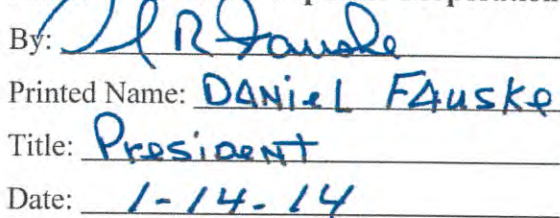 By: D R Fauske
Printed Name: DANiEL FAUSKe
Title: PresiDeNT
Date: 1-14-14